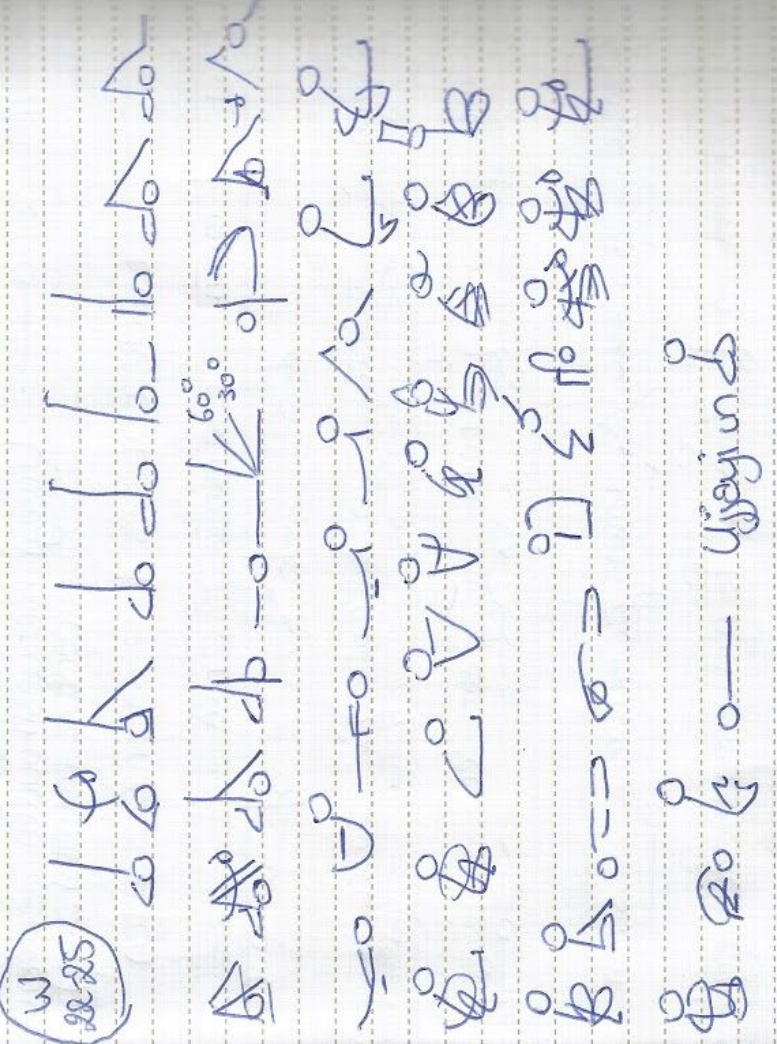 W
22-25
60°
30°
Ujjayi in